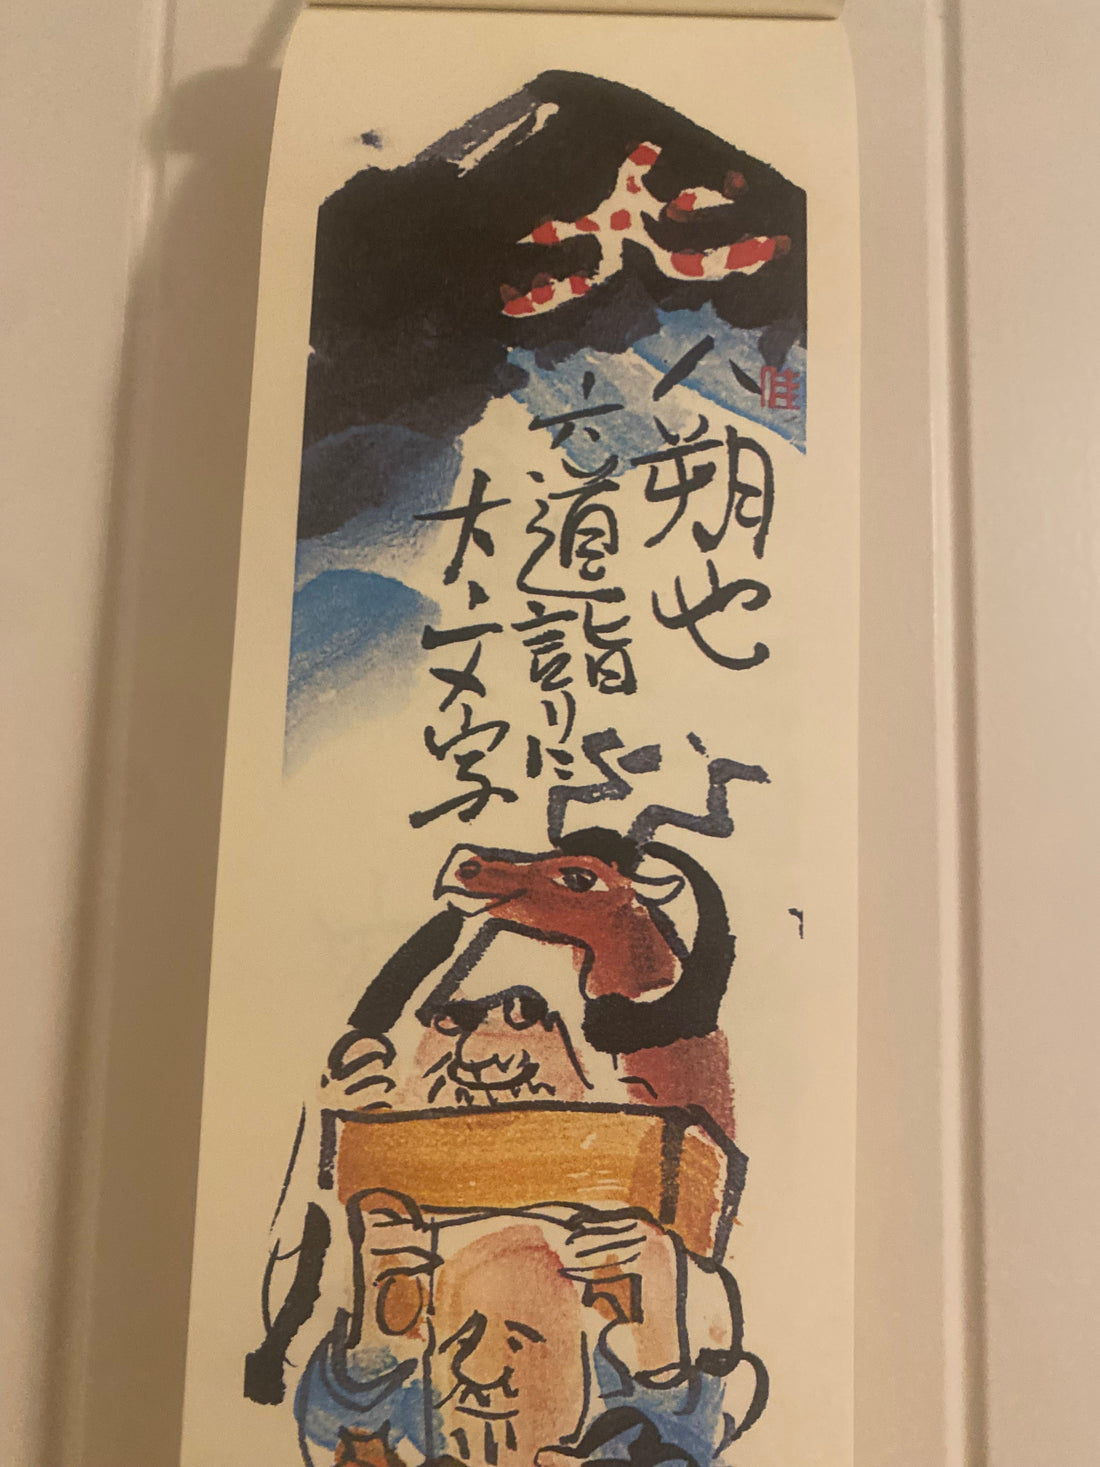 大
八朔也
六道詣りに
大文字